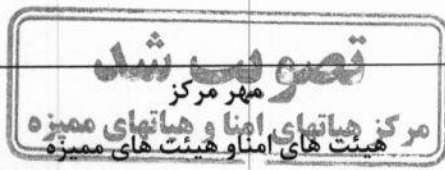 تصویب شد
مهر مرکز
مرکز هیاتهای امنا و هیاتهای ممیزه
هیئت های امناو هیئت های ممیزه